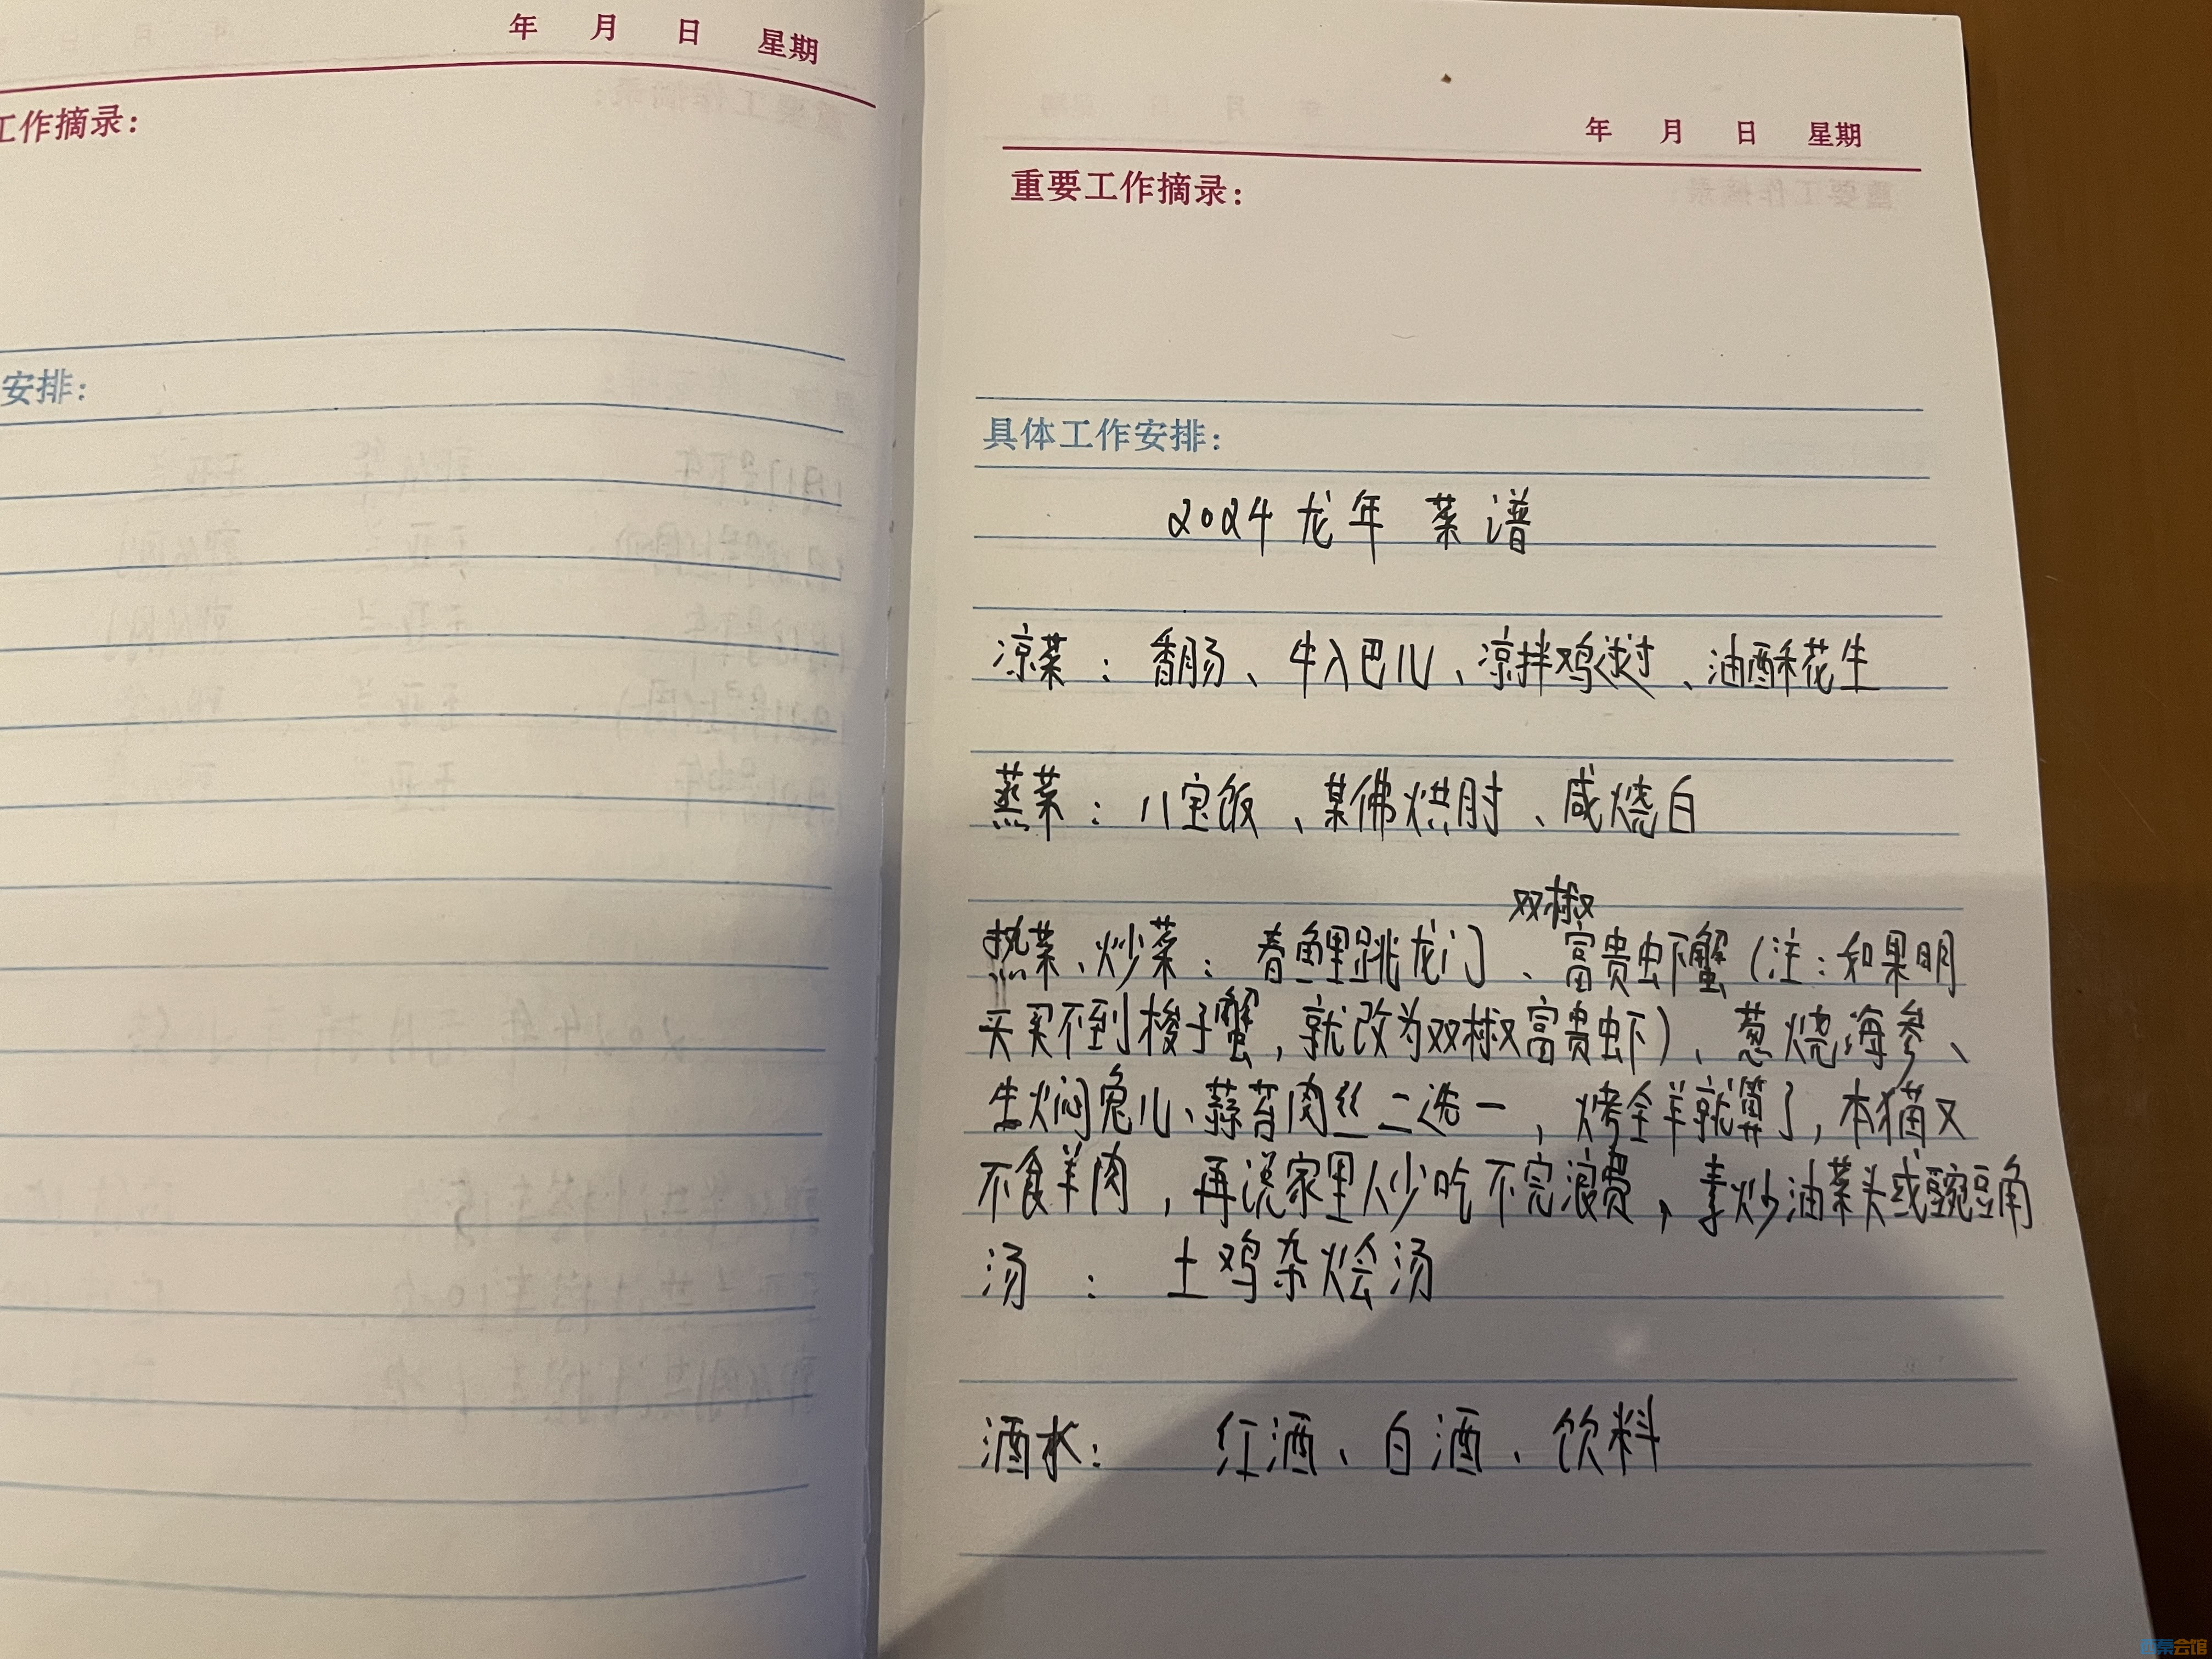 年 月 日 星期
工作摘录:
安排:
年 月 日 星期
重要工作摘录:
具体工作安排:
2024龙年 菜谱
凉菜:香肠、牛入巴儿、凉拌鸡、油酥花生
蒸菜:八宝饭、某佛烘肘、咸烧白
双椒
热菜、炒菜:春鲤跳龙门、富贵虾蟹(注:如果明
天买不到梭子蟹,就改为双椒富贵虾)、葱烧海参、
生焖兔儿、蒜苔肉丝二选一,烤全羊就算了,本猫又
不食羊肉,再说家里人少吃不完浪费,素炒油菜头或豌豆角
汤:土鸡杂烩汤
酒水: 红酒、白酒、饮料
会馆